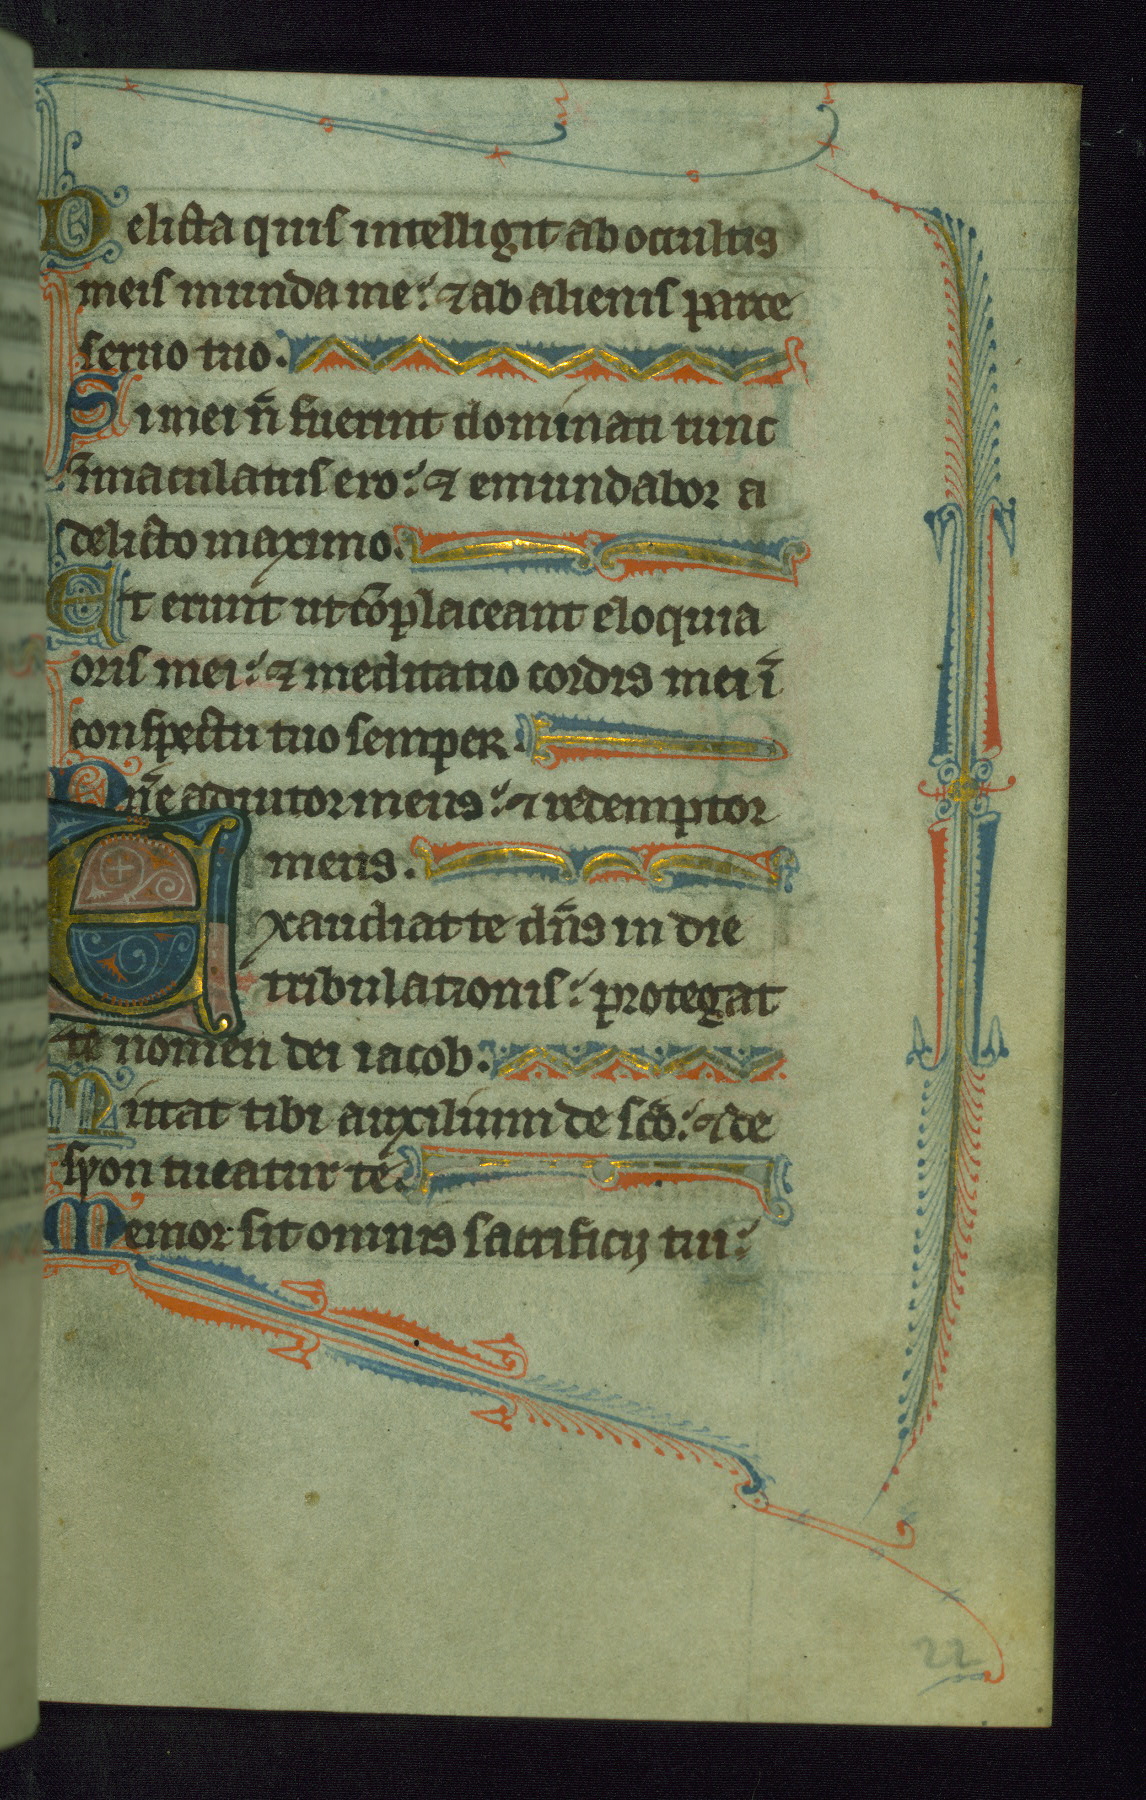 Delicta quis intelligit ab occultis
meis munda me: ⁊ ab alienis parce
seruo tuo.
Si mei n̄ fuerint dominati tunc
īmaculatus ero: ⁊ emundabor a
delicto maximo.
Et erunt ut cōplaceant eloquia
oris mei: ⁊ meditatio cordis mei ī
conspectu tuo semper.
Dn̄e adiutor meus: ⁊ redemptor
meus.
Exaudiat te dn̄s in die
tribulationis: protegat
te nomen dei iacob.
Mittat tibi auxilium de scō: ⁊ de
syon tueatur te.
Memor sit omnis sacrificij tui:
22